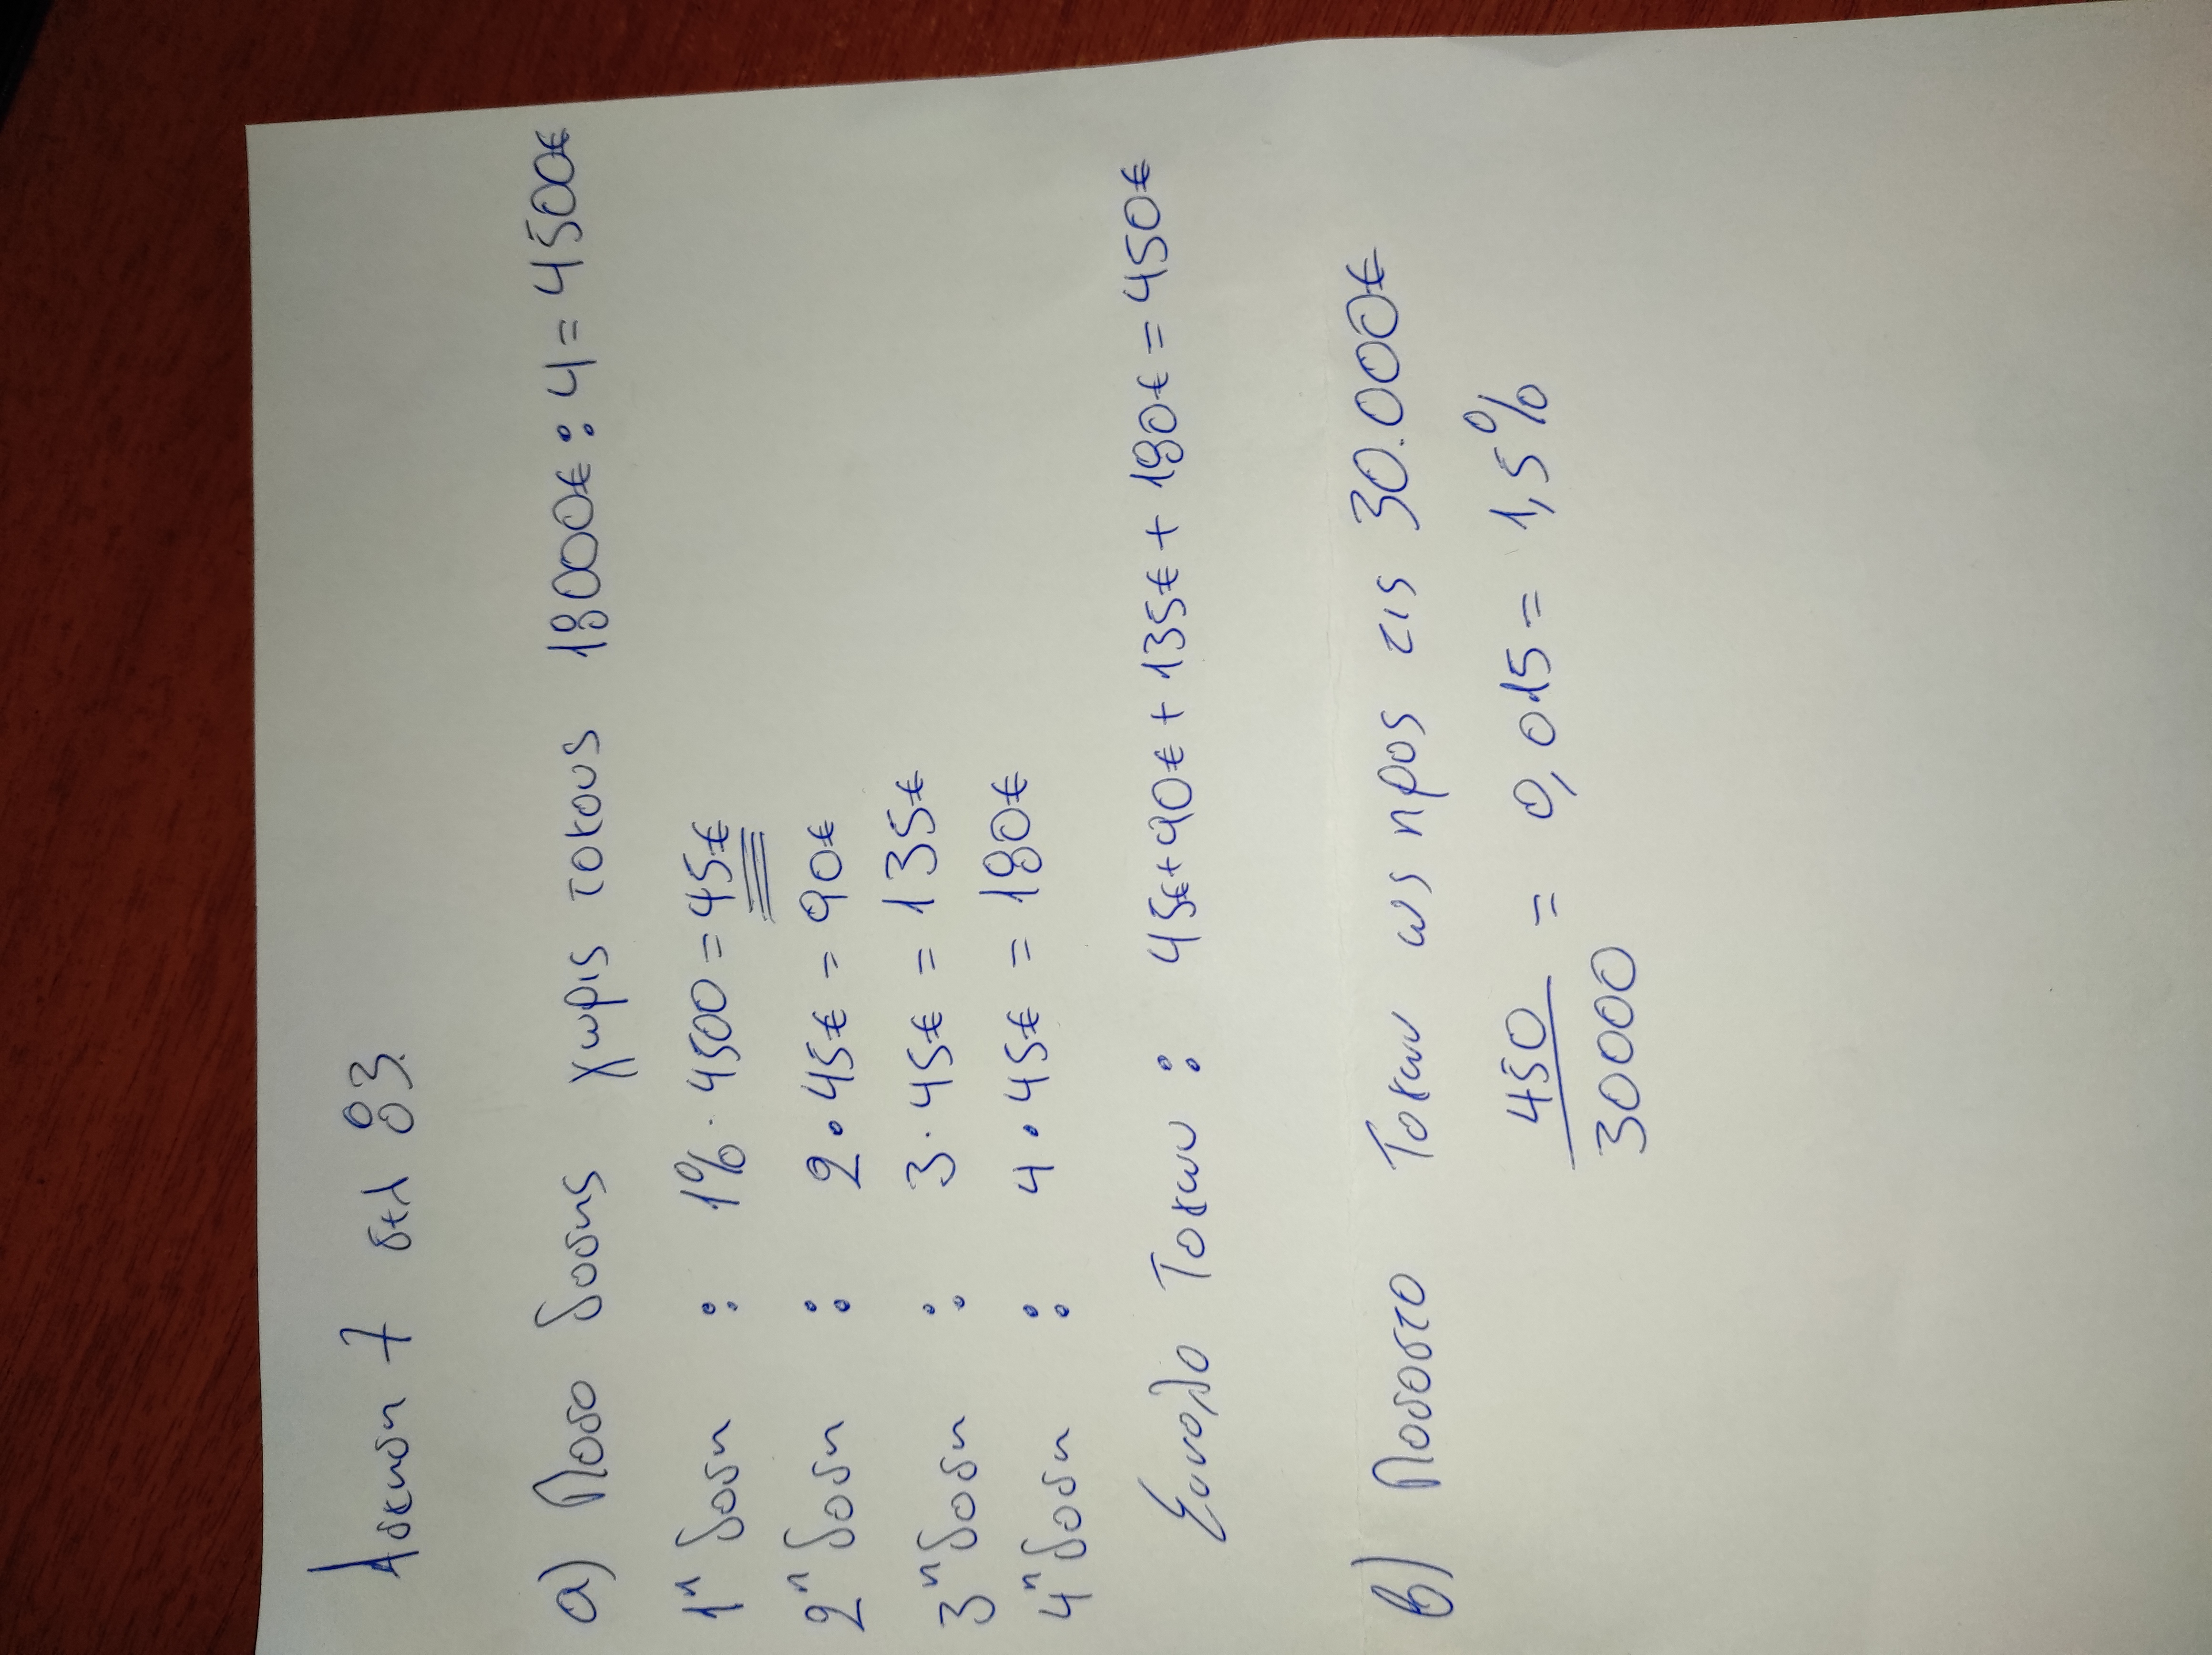 Ασκηση 7 σελ 83.
α) Ποσο δοσης χωρις τοκους 18000€ : 4 = 4500€
1η δοση : 1% · 4500 = 45€
2η δοση : 2 · 45€ = 90€
3η δοση : 3 · 45€ = 135€
4η δοση : 4 · 45€ = 180€
Συνολο Τοκων : 45€+90€+135€+180€ = 450€
β) Ποσοστο Τοκων ως προς τις 30.000€
450/30000 = 0,015 = 1,5%